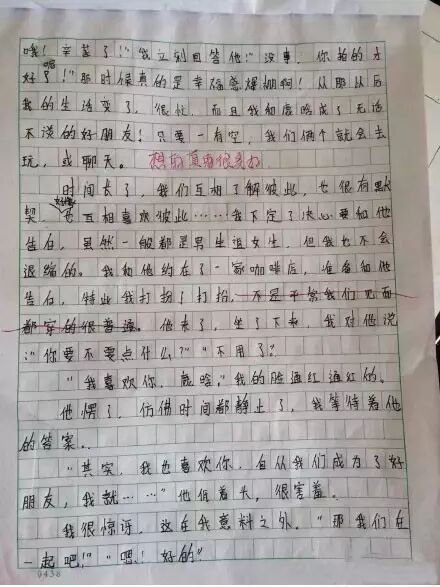 哦！辛苦了！”我立刻回答他“没事，你拍的才
好呢了！”那时候真的是幸福感爆棚啊！从那以后
我的生活变了，很忙，而且我和
不谈的好朋友！只要一有空，我们俩个就会去
玩，或聊天。想的真有很美好
时间长了，我们互相了解彼此，也很有默
契，好像也互相喜欢彼此……我下定了决心要和他
告白，虽然一般都是男生追女生，但我也不会
退缩的。我和他约在了一家咖啡店，准备和他
告白，特此我打扮了打扮，不是平常我们见面
都穿的很普通。他来了，坐了下来，我对他说
：“你要不要点什么？”“不用了。”
“我喜欢你，我的脸通红通红的。
他愣了，仿佛时间都静止了，我等待着他
的答案..
“其实，我也喜欢你，自从我们成为了好
朋友，我就……”他低着头，很害羞。
我很惊讶，这在我意料之外。“那我们在
一起吧！”“嗯！好的”